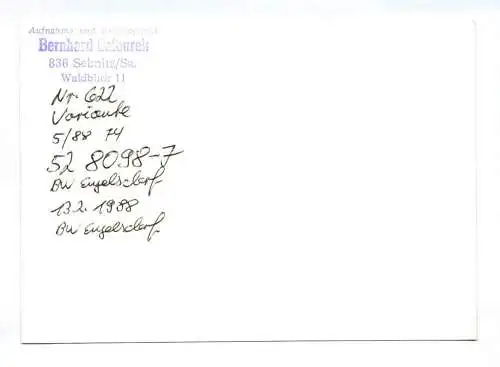 Aufnahme und
Bernhard
836 Sebnitz/Sa.
Waldblick 11
Nr. 622
Variante
5/88 74
52 8098-7
BW Engelsdorf
13.2. 1988
BW Engelsdorf